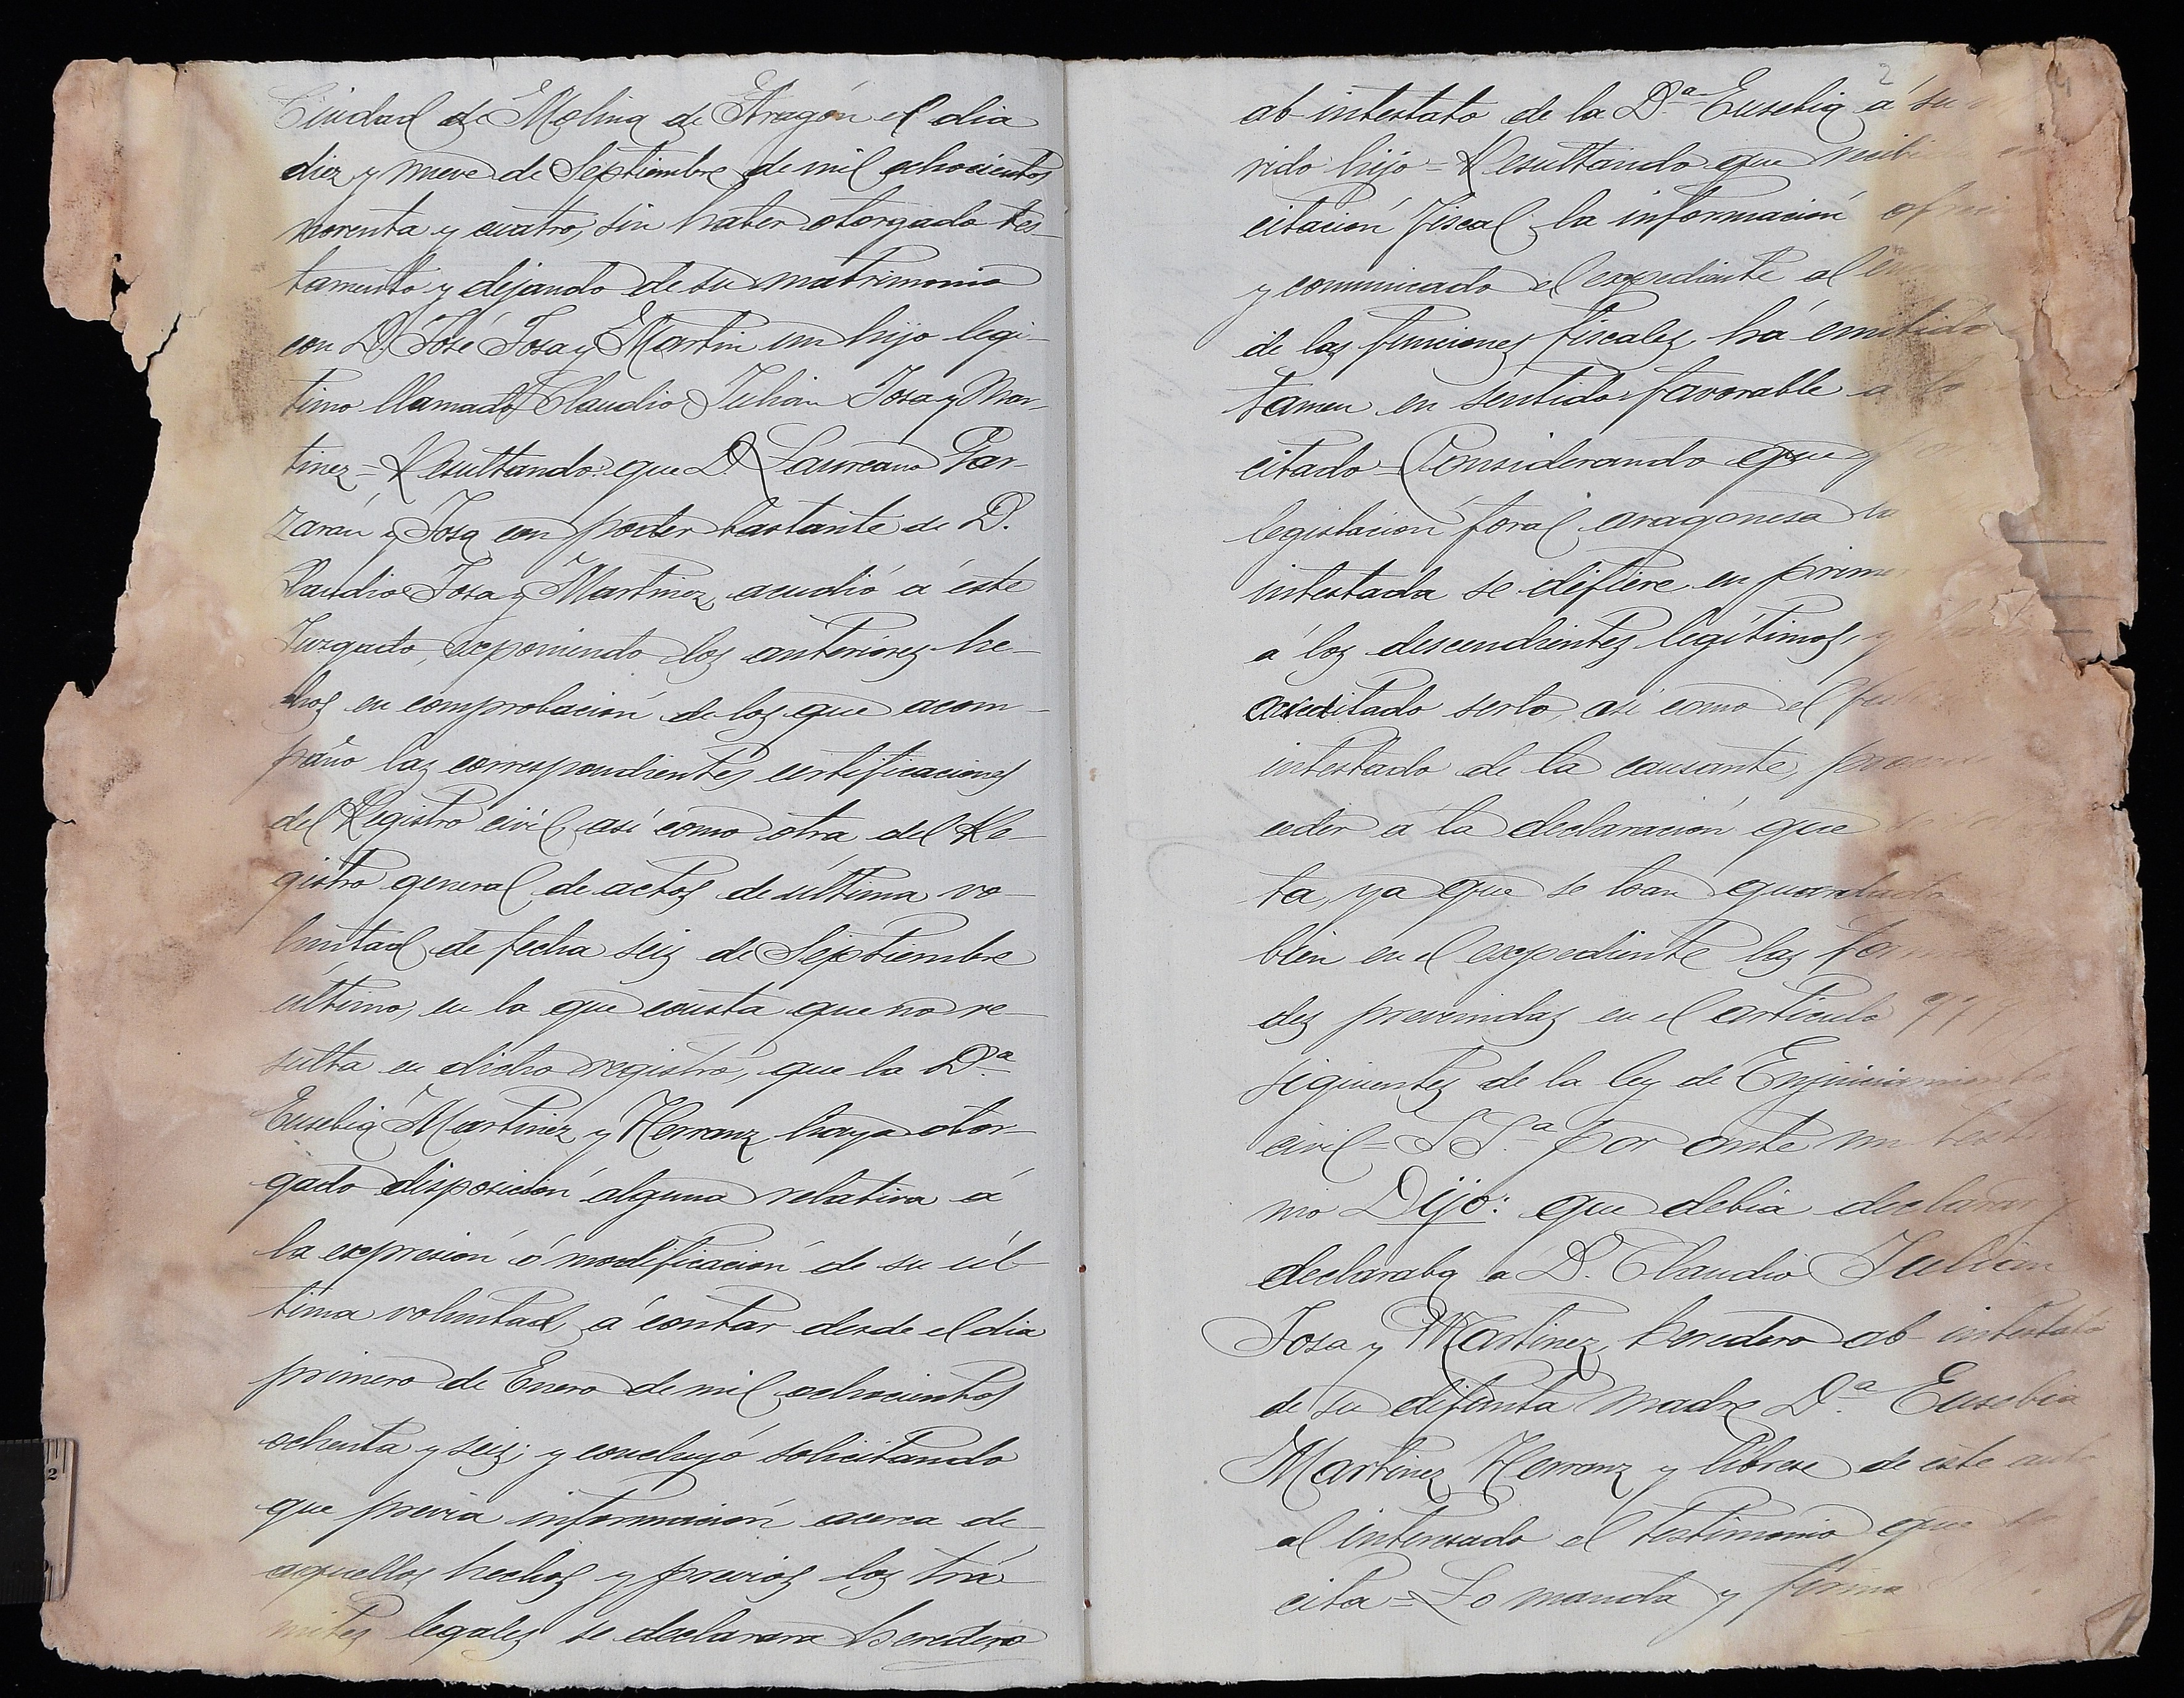 Ciudad de Molina de Aragón el dia
diez y nueve de Septiembre de mil ochocientos
noventa y cuatro, sin haber otorgado tes-
tamento y dejando de su matrimonio
con D. José Josa y Martin un hijo legi-
timo llamado Claudio Julián Josa y Mar-
tinez = Resultando: que D. Laureano Gar-
zarán y Josa con poder bastante de D.
Claudio Josa y Martinez, acudió á éste
Juzgado, exponiendo los anteriores he-
chos en comprobación de los que acom-
paño las correspondientes certificaciones
del Registro civil, asi como otra del Re-
gistro general de actos de última vo-
luntad de fecha seis de Septiembre
último, en la que consta que no re-
sulta en dicho registro, que la D.ª
Eusebia Martinez y Herranz haya otor-
gado disposición alguna relativa á
la expresión ó modificación de su úl-
tima voluntad, á contar desde el dia
primero de Enero de mil ochocientos
ochenta y seis; y concluyó solicitando
que previa información acerca de
aquellos hechos y previos los trá-
mites legales se declarara heredero
2
ab-intestato de la D.ª Eusebia á su
rido hijo = Resultando que recibi
citación fiscal la información
y comunicado el expediente al
de las funciones fiscales, há emitido
tamen en sentido favorable a lo
citado = Considerando que
legislación foral aragonesa la
intestada se difiere en prime
á los descendientes legítimos, y
acreditado serlo, asi como el
intestado de la causante,
ceder á la declaración que
ta, ya que se han guardado
bien en el expediente las for
des prevenidas en el artículo
siguientes de la ley de Enjuiciamiento
civil = S.S.ª por ante mi
nio Dijo: que debia declarar y
declaraba á D. Claudio Julián
Josa y Martinez, heredero ab-intestato
de su difunta madre D.ª Eusebia
Martinez Herranz y librese de este auto
al interesado el testimonio que
cita = Lo manda y firma